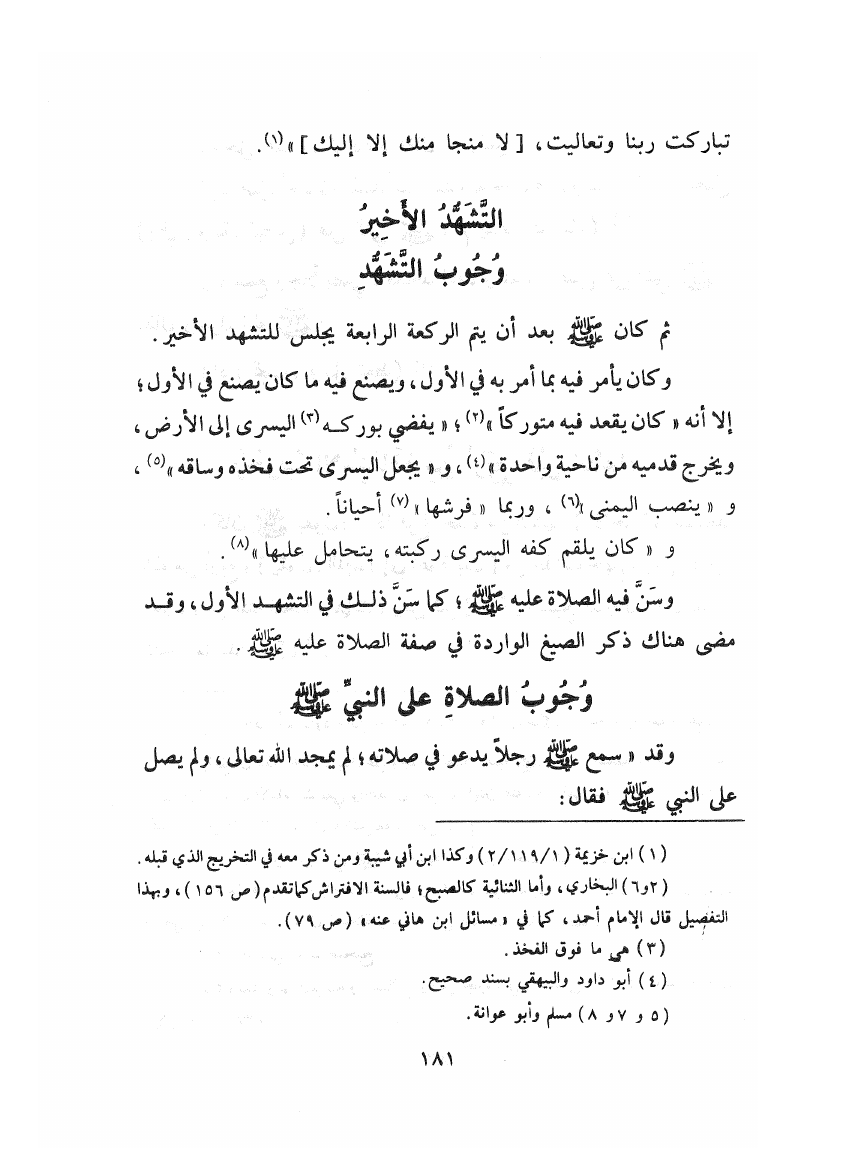 تباركت ربنا وتعاليت، [ لا منجا منك إلا إليك ] »(١).
التَّشَهُّدُ الأَخِيرُ
وُجُوبُ التَّشَهُّدِ
ثم كان ﷺ بعد أن يتم الركعة الرابعة يجلس للتشهد الأخير.
وكان يأمر فيه بما أمر به في الأول، ويصنع فيه ما كان يصنع في الأول؛
إلا أنه « كان يقعد فيه متوركاً »(٢)؛ « يفضي بوركـه(٣) اليسرى إلى الأرض،
ويخرج قدميه من ناحية واحدة »(٤)، و « يجعل اليسرى تحت فخذه وساقه »(٥)،
و « ينصب اليمنى »(٦) ، وربما « فرشها »(٧) أحياناً.
و « كان يلقم كفه اليسرى ركبته، يتحامل عليها »(٨).
وسَنَّ فيه الصلاة عليه ﷺ؛ كما سَنَّ ذلـك في التشهـد الأول، وقـد
مضى هناك ذكر الصيغ الواردة في صفة الصلاة عليه ﷺ.
وُجُوبُ الصلاةِ على النبيِّ ﷺ
وقد « سمع ﷺ رجلاً يدعو في صلاته؛ لم يمجد الله تعالى، ولم يصل
على النبي ﷺ فقال:
(١) ابن خزيمة (٢/١١٩/١) وكذا ابن أبي شيبة ومن ذكر معه في التخريج الذي قبله.
(٢و٦) البخاري، وأما الثنائية كالصبح؛ فالسنة الافتراش كما تقدم (ص ١٥٦)، وبهذا
التفصيل قال الإمام أحمد، كما في « مسائل ابن هاني عنه » (ص ٧٩).
(٣) هي ما فوق الفخذ.
(٤) أبو داود والبيهقي بسند صحيح.
(٥ و ٧ و ٨) مسلم وأبو عوانة.
١٨١